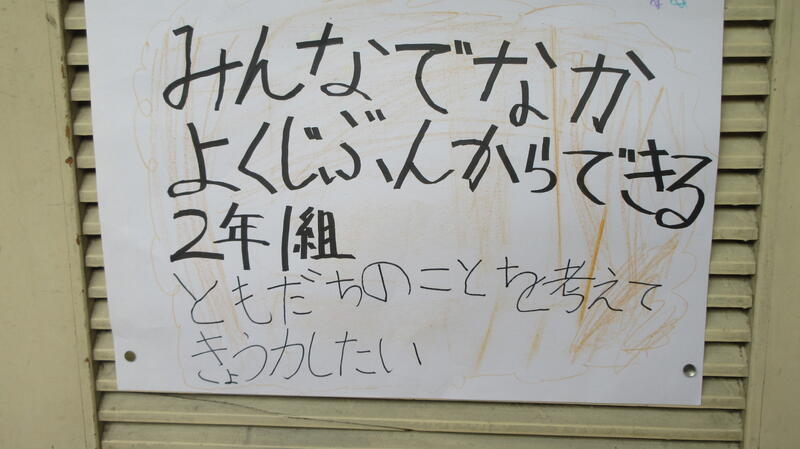 みんなでなか
よくじぶんからできる
2年1組
ともだちのことを考えて
きょう力したい